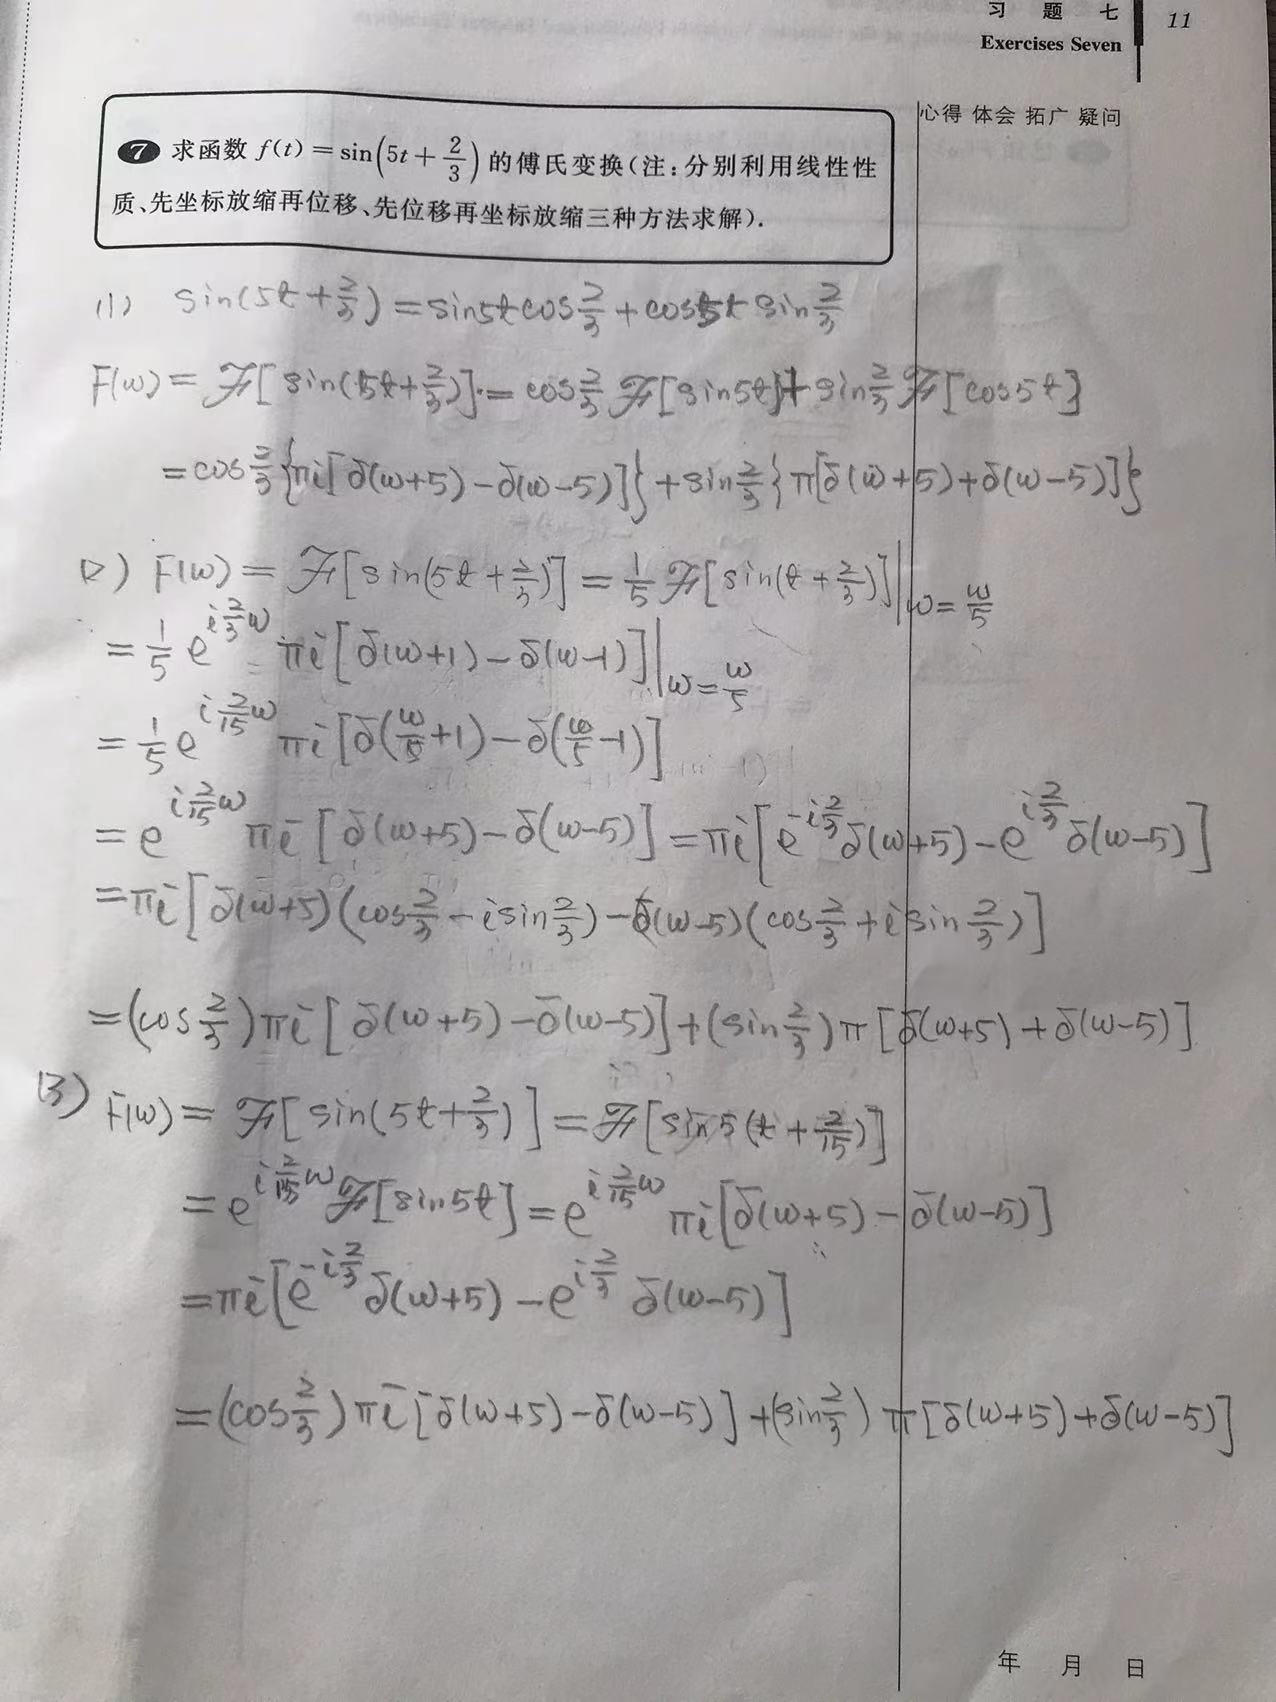 习 题 七
Exercises Seven
11
心得 体会 拓广 疑问
7 求函数 f(t) = sin(5t + 2/3) 的傅氏变换(注:分别利用线性性
质、先坐标放缩再位移、先位移再坐标放缩三种方法求解).
(1) sin(5t + 2/3) = sin5t cos 2/3 + cos5t sin 2/3
F(ω) = ℱ[sin(5t + 2/3)] = cos 2/3 ℱ[sin5t] + sin 2/3 ℱ[cos5t]
= cos 2/3 {πi[δ(ω+5) - δ(ω-5)]} + sin 2/3 {π[δ(ω+5) + δ(ω-5)]}
(2) F(ω) = ℱ[sin(5t + 2/3)] = 1/5 ℱ[sin(t + 2/3)]|ω = ω/5
= 1/5 e^{i 2/3 ω} πi[δ(ω+1) - δ(ω-1)]|ω = ω/5
= 1/5 e^{i 2/15 ω} πi[δ(ω/5 + 1) - δ(ω/5 - 1)]
= e^{i 2/15 ω} πi[δ(ω+5) - δ(ω-5)] = πi[e^{-i 2/3} δ(ω+5) - e^{i 2/3} δ(ω-5)]
= πi[δ(ω+5)(cos 2/3 - i sin 2/3) - δ(ω-5)(cos 2/3 + i sin 2/3)]
= (cos 2/3)πi[δ(ω+5) - δ(ω-5)] + (sin 2/3)π[δ(ω+5) + δ(ω-5)]
(3) F(ω) = ℱ[sin(5t + 2/3)] = ℱ[sin5(t + 2/15)]
= e^{i 2/15 ω} ℱ[sin5t] = e^{i 2/15 ω} πi[δ(ω+5) - δ(ω-5)]
= πi[e^{-i 2/3} δ(ω+5) - e^{i 2/3} δ(ω-5)]
= (cos 2/3)πi[δ(ω+5) - δ(ω-5)] + (sin 2/3)π[δ(ω+5) + δ(ω-5)]
年 月 日